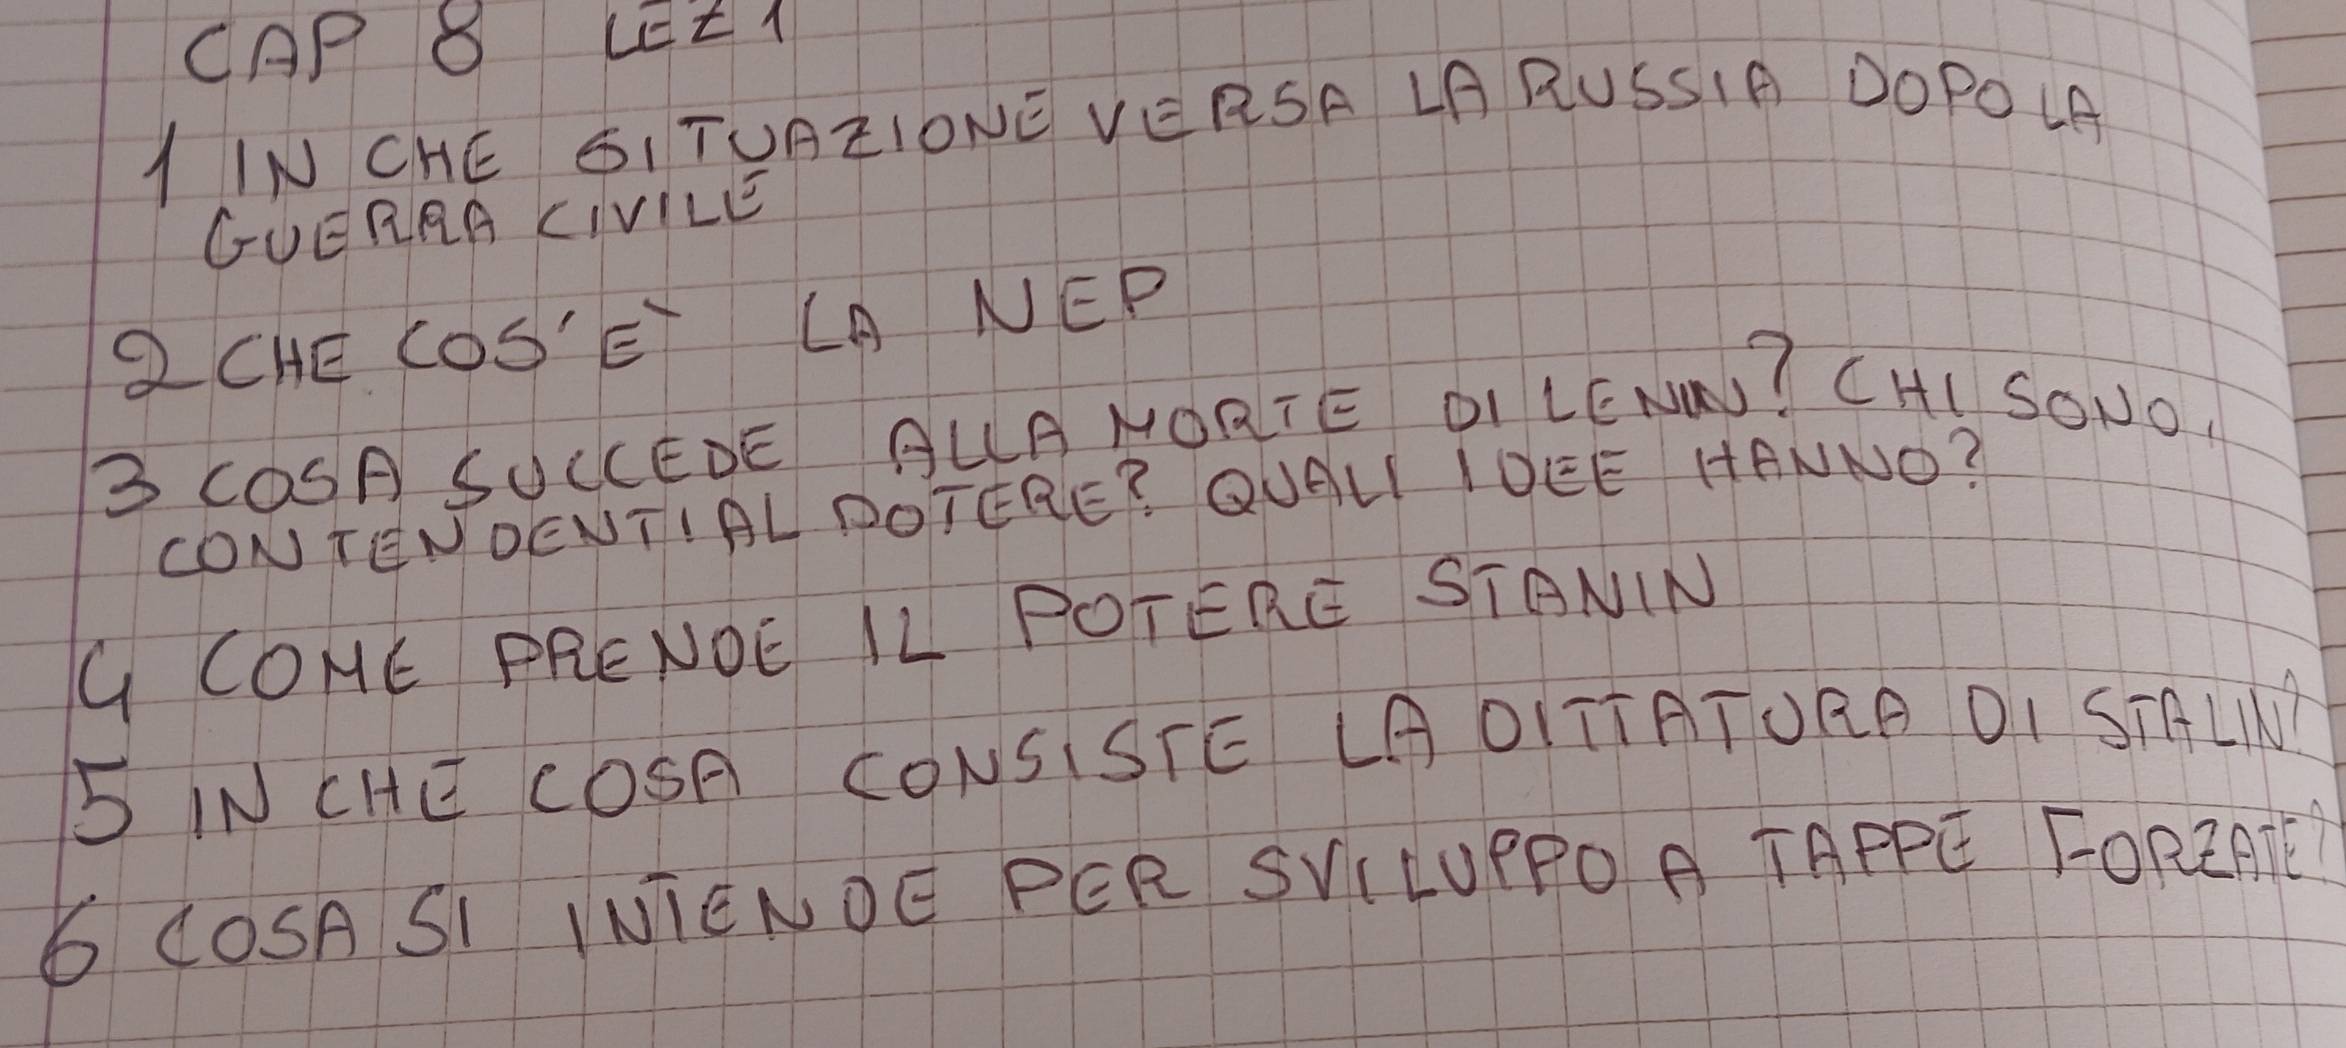 CAP 8 LEZ 1
1 IN CHE SITUAZIONE VERSA LA RUSSIA DOPO LA
GUERRA CIVILE
2 CHE COS'E` LA NEP
3 COSA SUCCEDE ALLA MORTE DI LENIN? CHI SONO I
CONTENDENTI AL POTERE? QUALI IDEE HANNO?
4 COME PRENDE IL POTERE STANIN
5 IN CHE COSA CONSISTE LA DITTATURA DI STALIN?
6 COSA SI INTENDE PER SVILUPPO A TAPPE FORZATE?